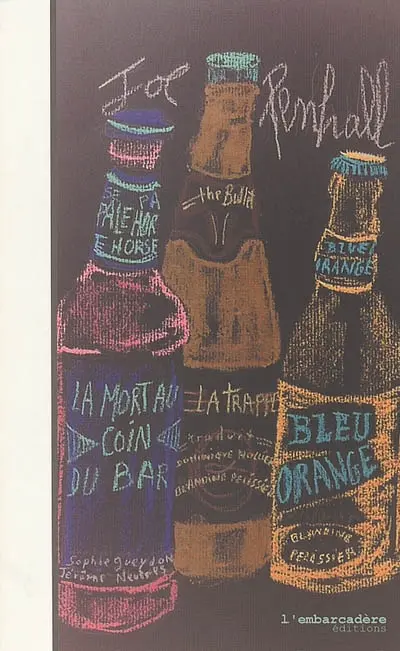 Joe Penhall
SE PA
PALE HOR
E HORSE
the Bullet
BLUE/
ORANGE
LA MORT AU
COIN
DU BAR
LA TRAPPE
traduit
DOMINIQUE HOLLIER
BLANDINE PELISSIER
BLEU
ORANGE
BLANDINE
PELISSIER
Sophie Gueydon
Jérôme Neutres
l'embarcadère
éditions